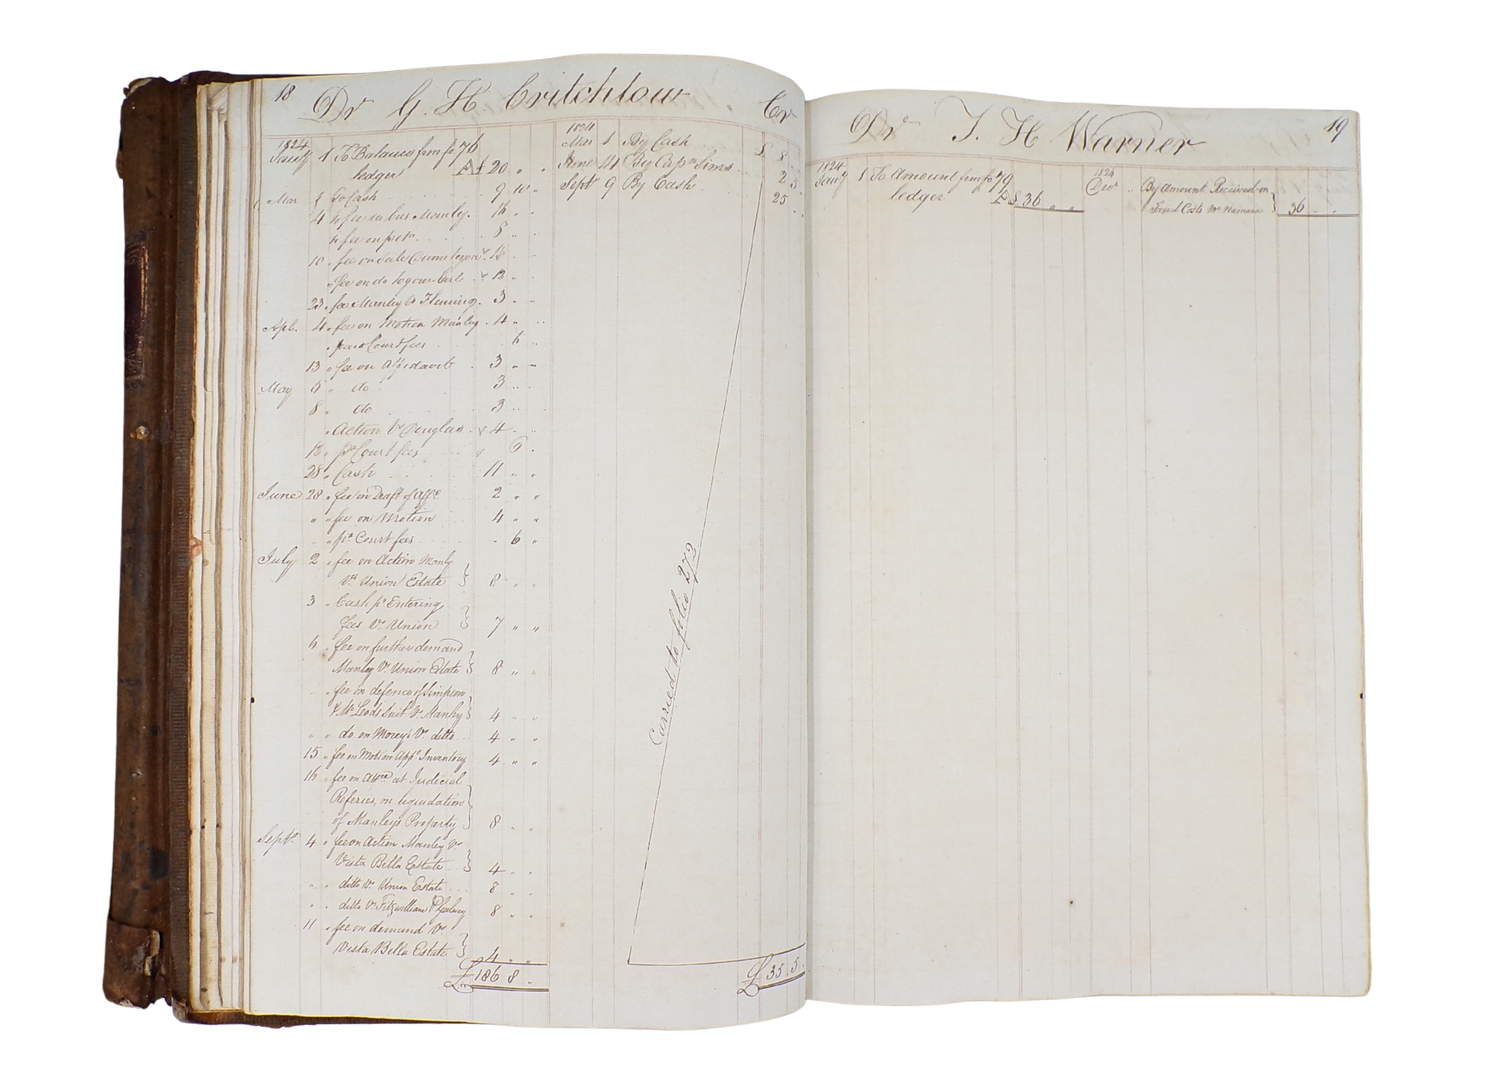 18
Dr G. H. Critchlow Cr
1824
Jany 1 To Balance from fo 76
ledger A £ 20 " "
Mar 1 To Cash 9 10 "
4 " fee
" fee on
10 " fee on Sale
" fee on do
23 " fee Manley Vs Fleming 3 " "
Apl. 4 " fee on Motion Manley 4 " "
" Court fees 6 "
13 " fee on Affidavit 3 " "
May 5 " do 3 " "
8 " do 3 " "
" Action Vs Douglas 4 " "
12 " pd Court fees 9 "
28 " Cash 11 " "
June 28 " fee on Draft of 2 " "
" " fee on Motion 4 " "
" pd Court fees " 6 "
July 2 " fee on Action Manly
Vs Union Estate } 8 " "
3 " Cash pd Entering
fees Vs Union } 7 " "
6 " fee on further demand
Manley Vs Union Estate } 8 " "
" fee on defence of Simpson
& Mc Leods Suit Vs Manley } 4 " "
" " do on Vs ditto 4 " "
15 " fee on Motion Appt Inventory 4 " "
16 " fee on at Judicial
Referies, on liquidation
of Manleys Property } 8 " "
Septr 4 " fee on Action Manley Vs
Vista Bella Estate } 4 " "
" " ditto Vs Union Estate 8 " "
" " ditto Vs Fitzwilliam 8 " "
11 " fee on demand Vs
Vista Bella Estate } 4 " "
£ 186 8 "
1824
Mar 1 By Cash £ 8 "
June 11 By Capn Sims 2 5
Sept 9 By Cash 25 " "
Carried to folio 272
£ 35 5 "
19
Dr J. H. Warner
1824
Jany 1 To Amount from fo 79
ledger £ 36 " "
1824
Decr " By Amount Received on
Costs } 36 " "